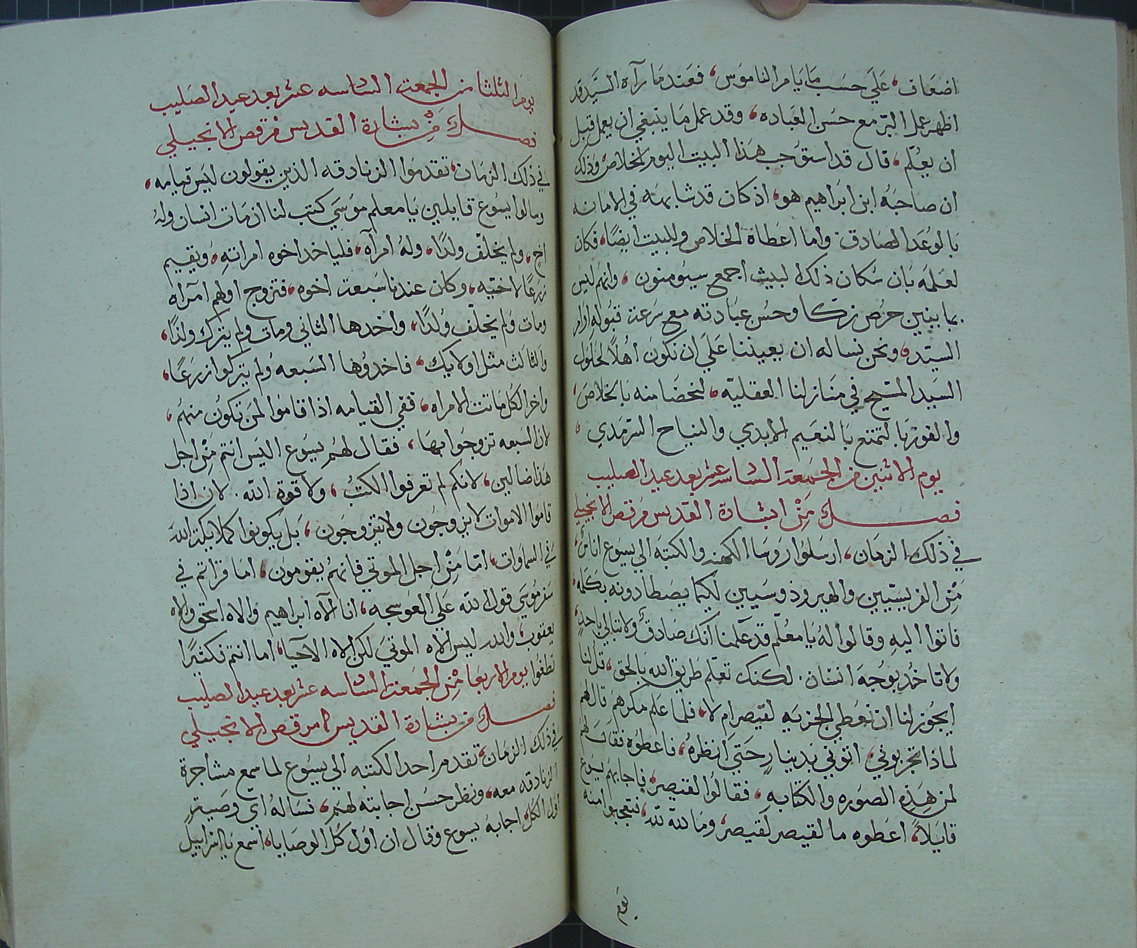 اضعاف، علي حسب ما يامر الناموس، فعند ما رآه السيد قد
اظهر عمل البر مع حسن العباده، وقد عمل ما ينبغي ان يعمل قبل
ان يعلم، قال قد استوجب هذا البيت اليوم الخلاص وذلك
ان صاحبه ابن ابراهيم هو، اذ كان قد شابهه في الامانه
بالوعد الصادق، وانما اعطاه الخلاص والبيت ايضًا، فكان
لعلمه بان سكان ذلك البيت اجمع سيومنون، وانهم ليس
حرص زكا وحسن عبادته مع سرعة قبوله اوامر
السيد، ونحن نساله ان يعيننا علي ان نكون أهلًا لحلول
السيد المسيح في منازلنا العقليه، لنحضا منه بالخلاص،
والفوز بالتمتع بالنعيم الابدي والنياح السرمدي،
يوم الاثنين من الجمعة السادسه عشر بعد عيد الصليب
فصل من بشارة القديس مرقص الانجيلي
في ذلك الزمان، ارسلوا روسا الكهنه والكتبه الي يسوع اناسٌ
من الفريسيين، والهيروذوسيين لكيما يصطادونه بكلمه،
فاتوا اليه وقالوا لهُ يا معلم قد علمنا انك صادق، ولا تبالي باحدٍ،
ولا تاخذ بوجه انسان. لكنك تعلم طريق الله بالحق، قل لنا
ايجوز لنا ان نعطي الجزيه لقيصر ام لا، فلما علم مكرهم قال لهم
لماذا تجربوني، اتوني بدينارٍ حتي انظره، فاعطوه فقال لهم
لمن هذه الصوره والكتابه، فقالوا لقيصر، فاجابهم يسوع
قايلًا، اعطوه ما لقيصر لقيصر، وما لله لله، فتعجبوا منه
يوم
يوم الثلثا من الجمعة السادسه عشر بعد عيد الصليب
فصل من بشارة القديس مرقص الانجيلي
في ذلك الزمان، تقدموا الزنادقه الذين يقولون ليس قيامه،
وسالوا يسوع قايلين يا معلم موسي كتب لنا ان مات انسان وله
اخ، ولم يخلّف ولدًا، وله امرأه، فلياخد اخوه امراته، ويقيم
زرعًا لاخيه، وكان عندنا سبعة اخوه، فتزوج اولهم امرآه
ومات ولم يخلّف ولدًا، واخدها الثاني ومات ولم يترك ولدًا،
والثالث مثل اولايك، فاخدوها السبعه ولم يتركوا زرعًا،
واخر الكل ماتت الامراه، ففي القيامه اذا قاموا لمن تكون منهم،
لان السبعه تزوجوا بها، فقال لهم يسوع اليس انتم من اجل
هذا ضالين، لانكم لم تعرفوا الكتب، ولا قوة الله. لان اذا
قاموا الاموات لا يزوجون ولا يتزوجون، بل يكونوا كملايكة الله
في السماوات، امّا من اجل الموتي فانهم يقومون، اما قراتم في
سفر موسي قول الله علي العوسجه، انا الاه ابراهيم والاه اسحق والاه
يعقوب، والله ليس الاه الموتي لكن الاه الاحيا، اما انتم فكثيرًا
تطغوا يوم الاربعا من الجمعة السادسه عشر بعد عيد الصليب
فصل من بشارة القديس مرقص الانجيلي
في ذلك الزمان، تقدم احد الكتبه الي يسوع لما سمع مشاجرة
الزنادقه معه، ونظر حسن اجابته لهم، فساله اي وصيةٍ
اول الكل، اجابه يسوع وقال ان اول كل الوصايا، اسمع يا اسرابيل